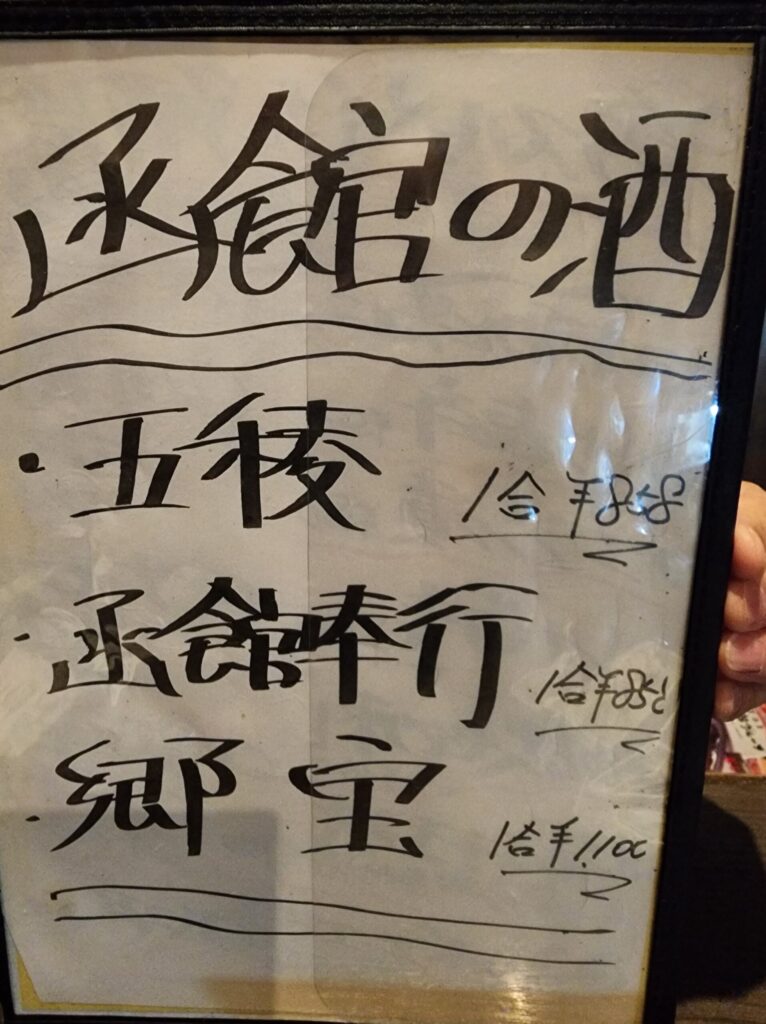 函館の酒
・五稜 1合 ¥858
・函館奉行 1合 ¥858
・郷宝 1合 ¥1,100